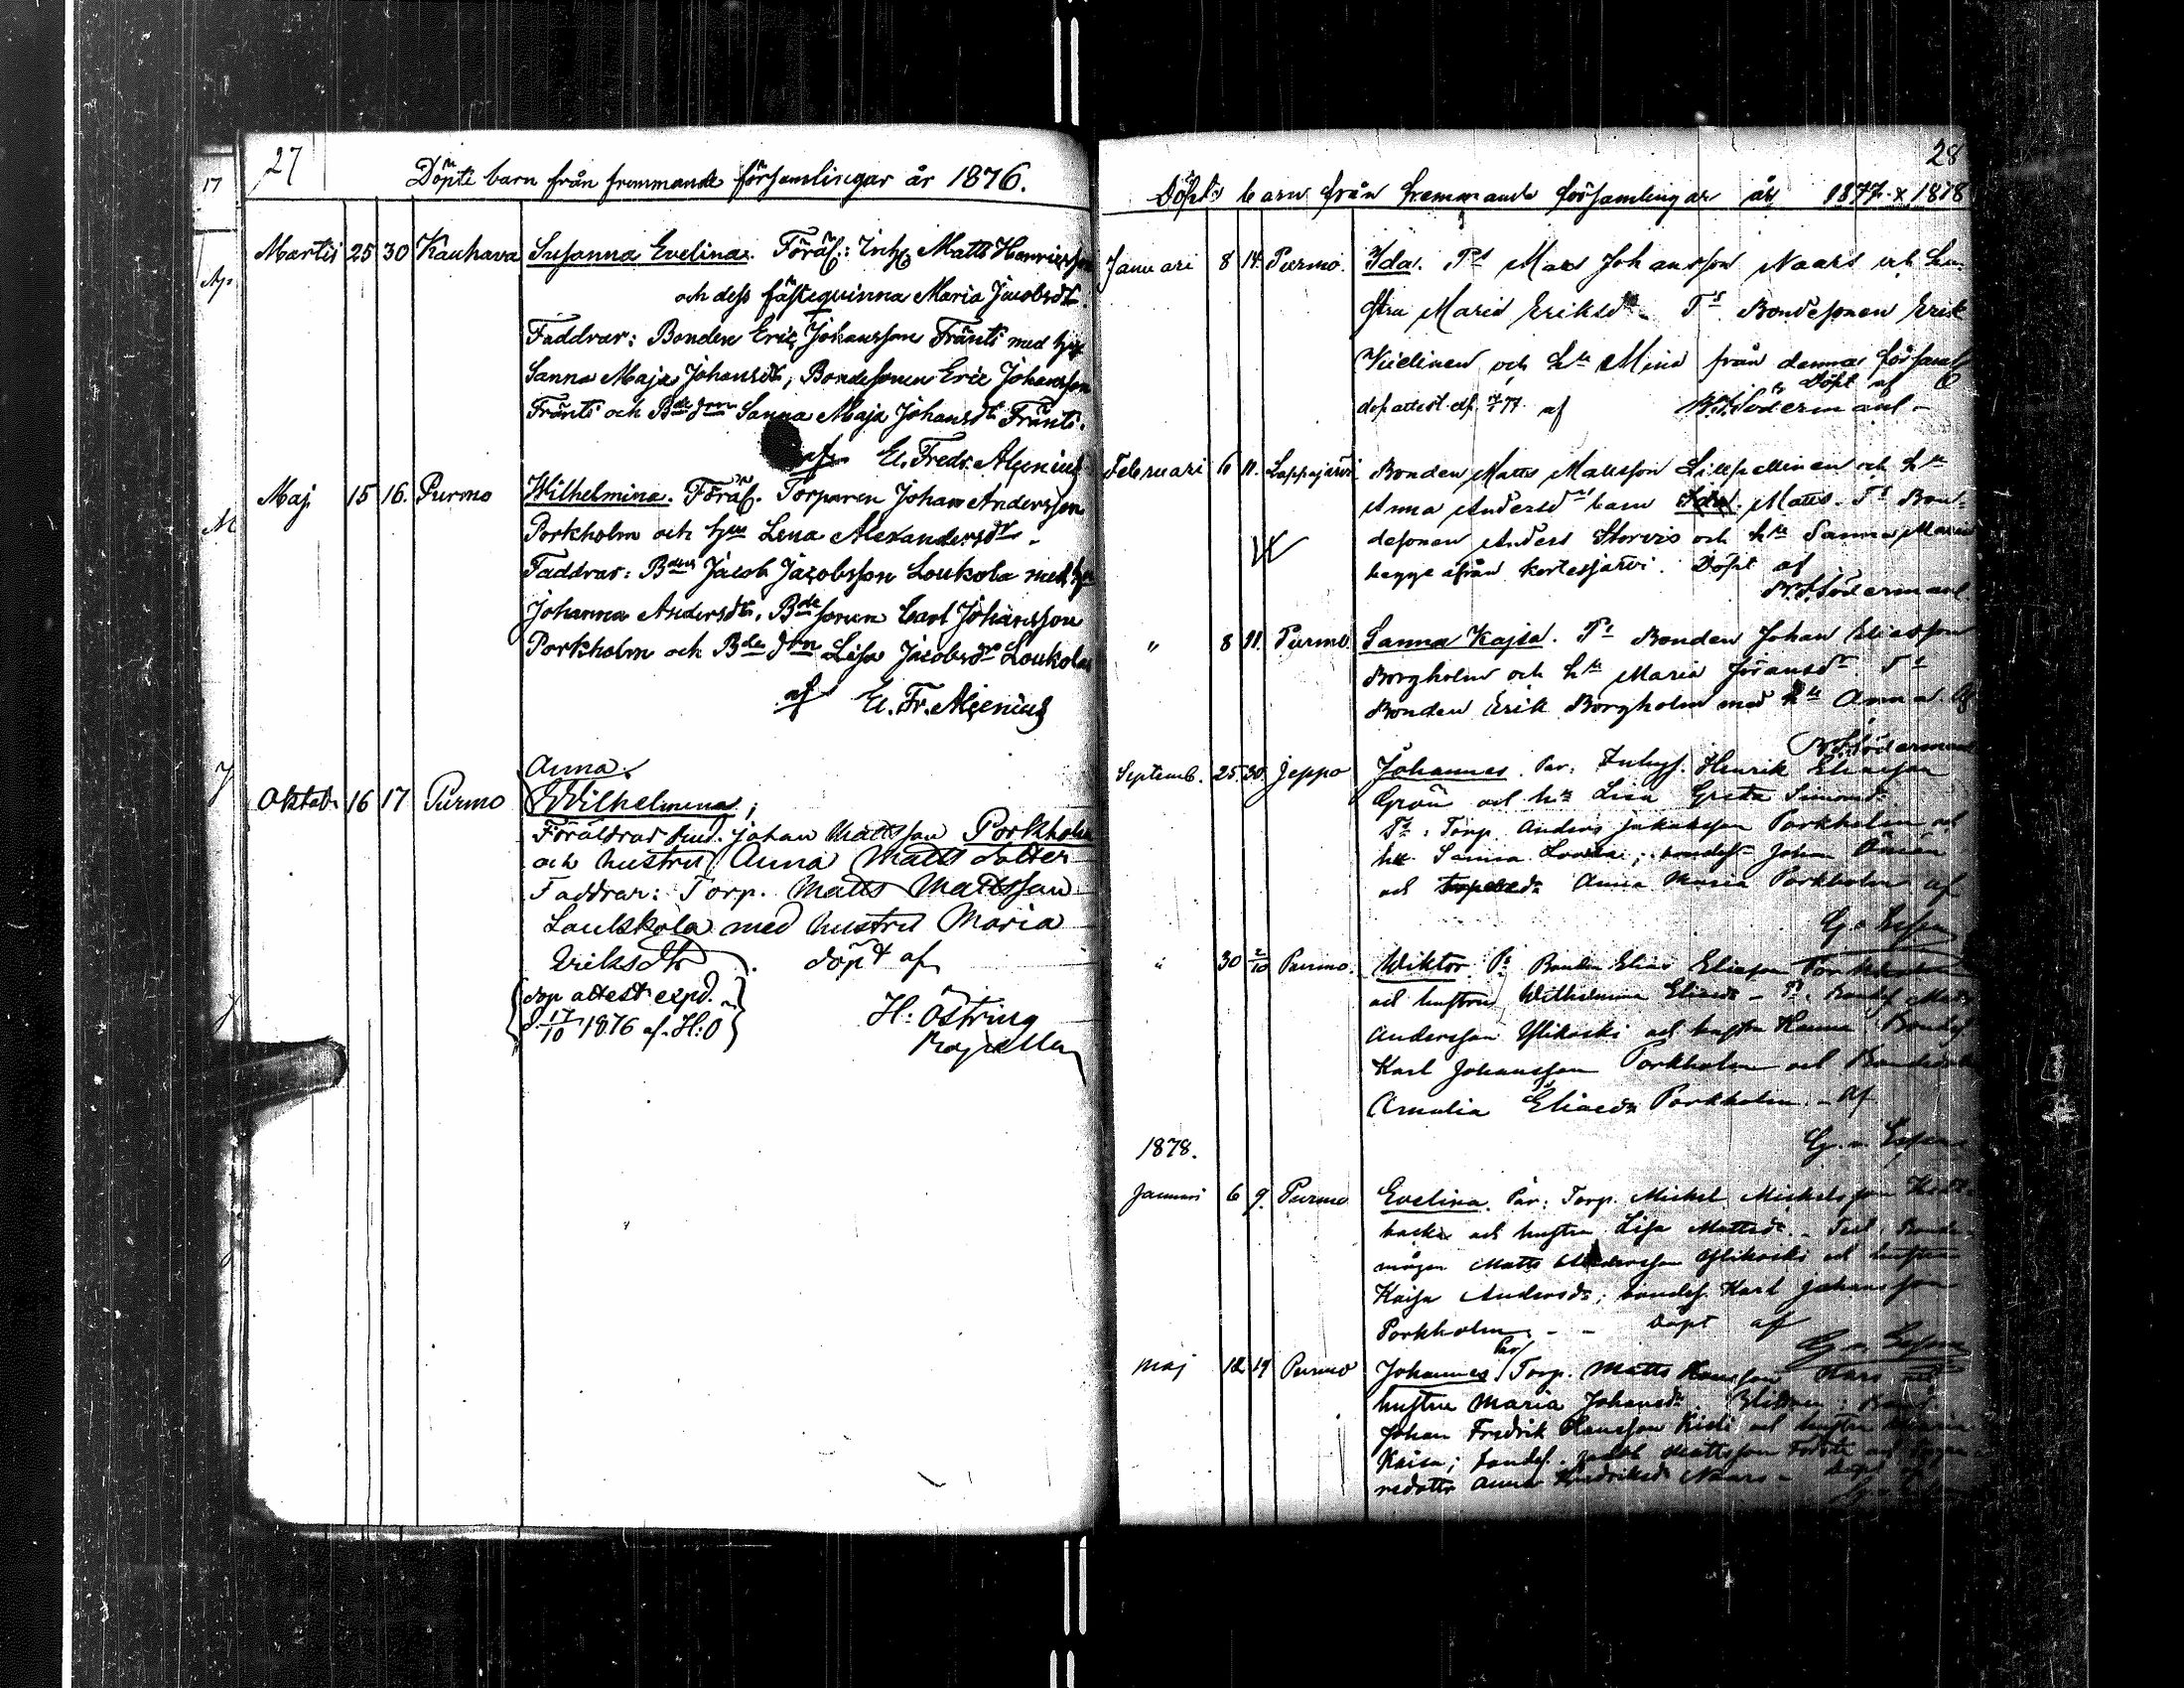 27
Döpte barn från fremmande församlingar år 1876.
Martis 25 30 Kauhava Susanna Evelina. Föräl.: Inhs Matts Henricsson
och dess fästeqvinna Maria Jacobsdtr.
Faddrar: Bonden Eric Johansson Fränti med hu
Sanna Maja Johansdtr, Bondesonen Eric Johansson
Fränti och Bde drn Sanna Maja Johansdtr Fränti.
af El. Fredr. Alcenius
Maj 15 16. Purmo Wilhelmina. Föräl. Torparen Johan Andersson
Porkholm och hu Lena Alexandersdtr.
Faddrar: Bden Jacob Jacobsson Loukola med hu
Johanna Andersdtr, Bde sonen Carl Johansson
Porkholm och Bde drn Lisa Jacobsdr Loukola
af El. Fr. Alcenius
Anna
Oktob. 16 17 Purmo Wilhelmina;
Föräldrar Johan Mattsson Porkholm
och hustru Anna Matts dotter
Faddrar: Torp. Matts Mattsson
Laulskola med hustru Maria
Eriksdtr. döpt af
dop attest expd. H: Östring
d. 17/10 1876 af H:O Kapellan
28
Döpte barn från fremmande församlingar år 1877 x 1878
Januari 8 14. Purmo. Ida. Ps Mats Johansson Naars och hu-
stru Maria Eriksdr. Ts Bondesonen Erik
Viedinen och hu Mina från denna församl
dopattest af Döpt af
Söderman
Februari 6 11. Lappajärvi Bonden Matts Mattsson och hu
Anna Andersdr barn Ida. Matts. Ts Bon-
desonen Anders Storvis och hu Sanna Maria
begge ifrån Kortesjärvi. Döpt af
Söderman
" 8 11. Purmo. Sanna Kajsa. Ps Bonden Johan Eliasson
Borgholm och hu Maria Göransdr. Ts
Bonden Erik Borgholm med hu Anna. Af
Söderman
Septemb. 25. 30. Jeppo Johannes. Par: Inhys. Henrik Eliasson
Grön och hu Lisa Greta Simonsd.
Ts: Torp. Anders Jakobsson Porkholm och
hu Sanna Lovisa; bondes. Johan
och Anna Maria Porkholm af
G. v. Essen
" 30 2/10 Purmo. Wiktor. Ps Bonden Elias Eliasson Porkholm
och hustru Wilhelmina Eliasdr - Ts. Bondes. Matts
Andersson Ylikoski och hustru Bondes.
Karl Johansson Porkholm och Bondedotter
Amalia Eliasdr Porkholm. - Af
G. v. Essen
1878.
Januari 6 9. Purmo Evelina. Par: Torp. Mickel Mickelsson
backa och hustru Lisa Mattsdr. - Bonde-
mågen Matts Andersson Ylikoski och hustru
Kaisa Andersdr; bondes. Karl Johansson
Porkholm. - - Döpt af
G. v. Essen
Par
Maj 12 19 Purmo Johannes. Torp. Matts Hansson och
hustru Maria Johansdr.
Johan Fredrik Hansson och hustru Maria
Kaisa; bondes. Jakob Mattsson
Anna Naars - Döpt